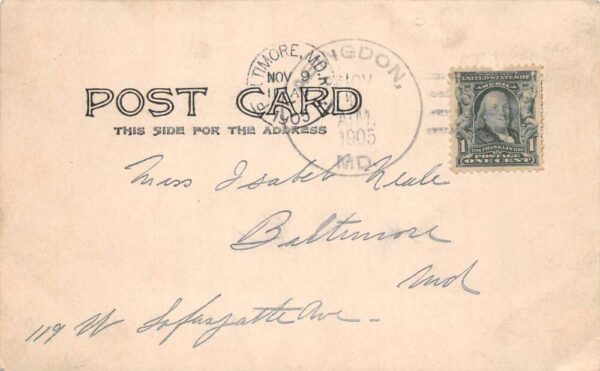 POST CARD
THIS SIDE FOR THE ADDRESS
BALTIMORE, MD.
NOV 9
1905
ABINGDON,
NOV
A.M.
1905
MD.
UNITED STATES OF
AMERICA
1 1
FRANKLIN
POSTAGE
ONE CENT
Miss Isabel Neale
Baltimore
Md
119 W Lafayette Ave-